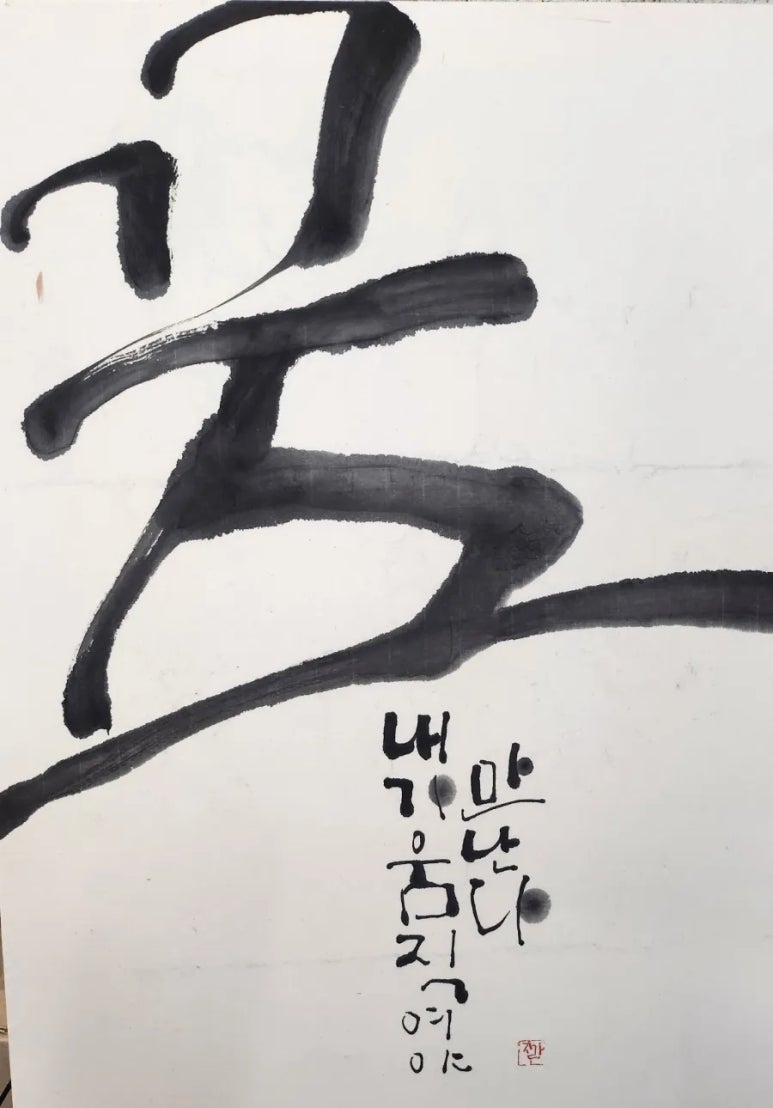 꿈
내가움직여야
만난다